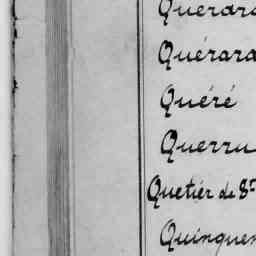 Querard
Quérard
Quéré
Querru
Quetier de St
Quinquen